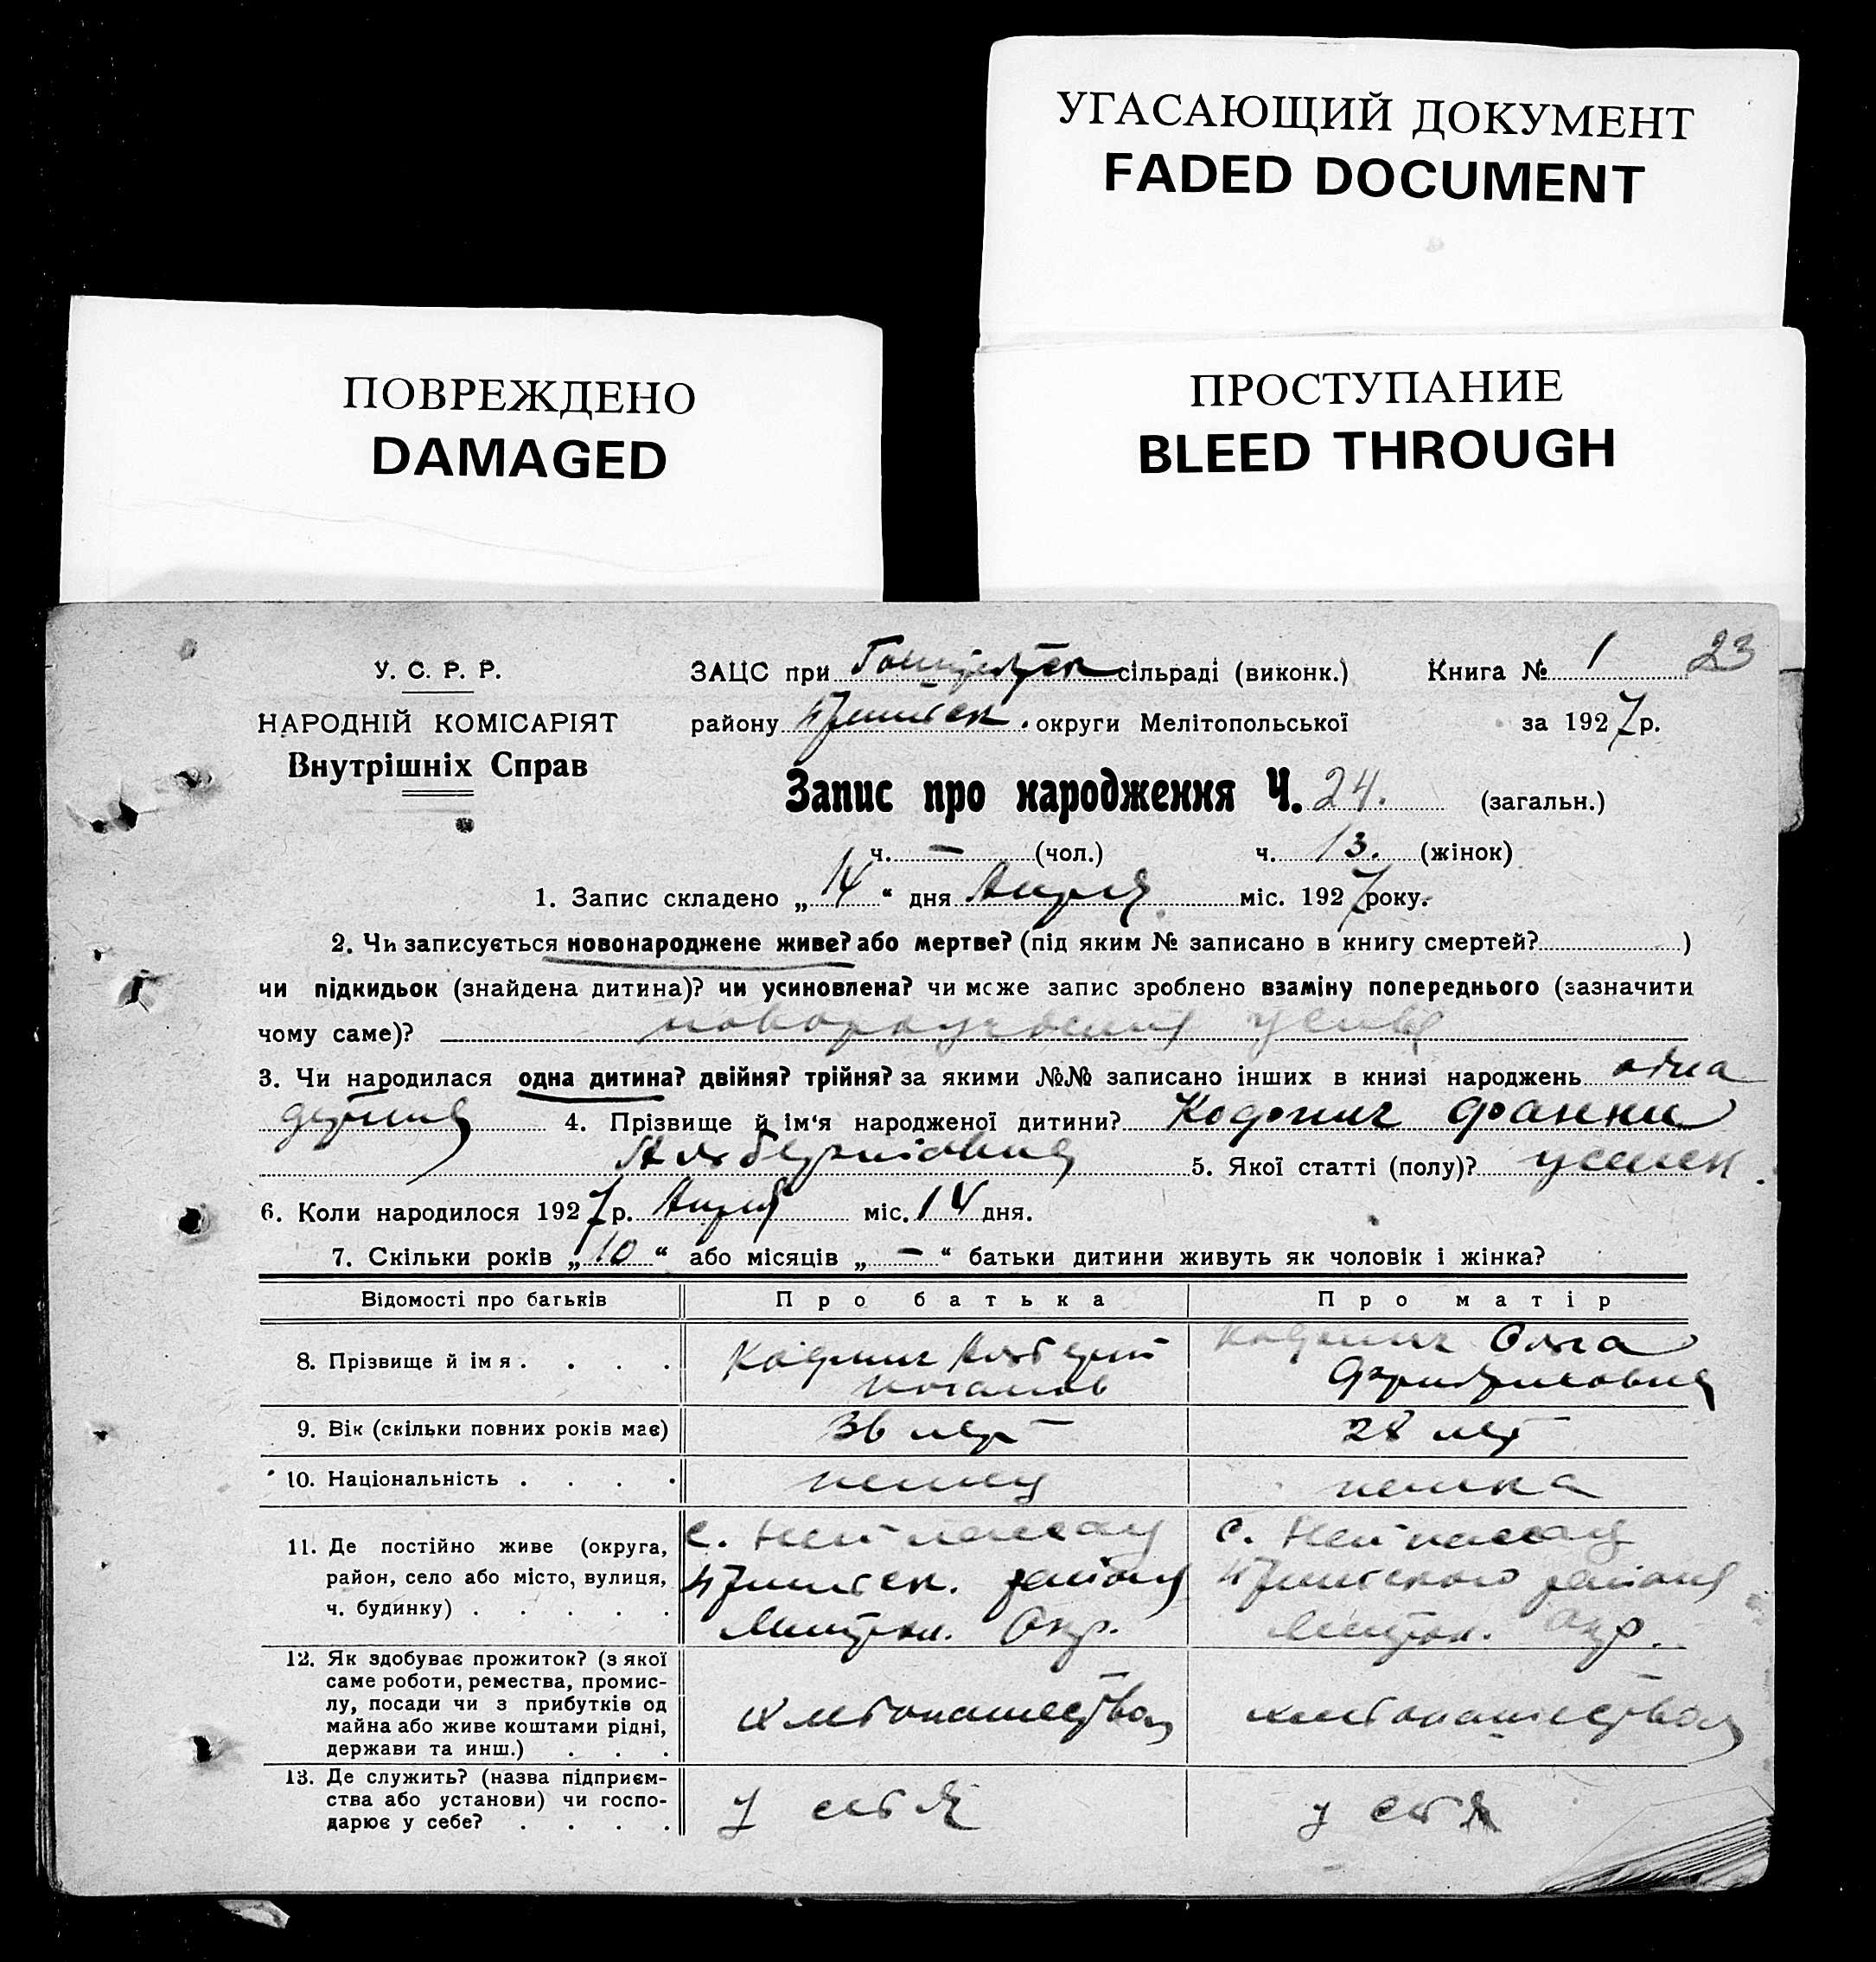 УГАСАЮЩИЙ ДОКУМЕНТ
FADED DOCUMENT
ПОВРЕЖДЕНО
DAMAGED
ПРОСТУПАНИЕ
BLEED THROUGH
У. С. Р. Р.
НАРОДНІЙ КОМІСАРІЯТ
Внутрішніх Справ
ЗАЦС при сільраді (виконк.) Книга № 1 23
району округи Мелітопольської за 1927 р.
Запис про народження Ч. 24. (загальн.)
ч. — (чол.) ч. 13. (жінок)
1. Запис складено „14“ дня Апреля міс. 1927 року.
2. Чи записується новонароджене живе? або мертве? (під яким № записано в книгу смертей? )
чи підкидьок (знайдена дитина)? чи усиновлена? чи може запис зроблено взаміну попереднього (зазначити
чому саме)?
3. Чи народилася одна дитина? двійня? трійня? за якими №№ записано інших в книзі народжень одна
4. Прізвище й ім'я народженої дитини?
Альбертовна 5. Якої статті (полу)? женск.
6. Коли народилося 1927 р. Апреля міс. 14 дня.
7. Скільки років „10“ або місяців „—“ батьки дитини живуть як чоловік і жінка?
Відомості про батьків Про батька Про матір
8. Прізвище й імя . . . . Альберт Ольга
Фридриховна
9. Вік (скільки повних років має) 36 лет 28 лет
10. Національність . . . . немец немка
11. Де постійно живе (округа, с. с.
район, село або місто, вулиця, района района
ч. будинку) . . . . . Окр. Окр.
12. Як здобуває прожиток? (з якої
саме роботи, ремества, промис-
лу, посади чи з прибутків од хлебопашеством хлебопашеством
майна або живе коштами рідні,
держави та инш.) . . .
13. Де служить? (назва підприєм-
ства або установи) чи госпо- у себя у себя
дарює у себе? . . . .